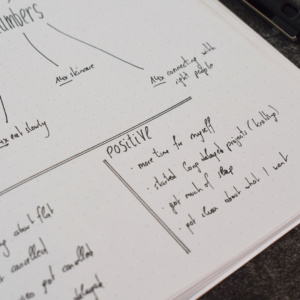 numbers
14x skincare
14x connecting with
right people
eat slowly
positive
• more time for myself
• started long delayed projects (knitting)
• got much of sleep
• got clear about what I want
about flat
cancelled
got cancelled